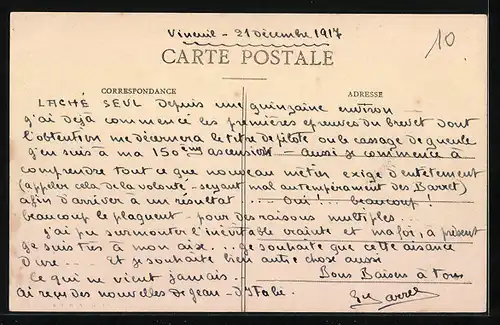 Vineuil - 21 décembre 1917
10
CARTE POSTALE
CORRESPONDANCE
ADRESSE
LACHÉ SEUL depuis une quinzaine environ
j'ai dejà commencé les premières epreuves du brevet dont
l'obtention me décernera le titre de pilote ou le cassage de gueule
j'en suis à ma 150ème ascension - aussi je commence à
comprendre tout ce que nouveau métier exige d'entetement
(appeler cela de la volonté - seyant mal au tempérament des Barret)
afin d'arriver à un résultat ... Oui! .. beaucoup!
beaucoup le plaquent - pour des raisons multiples ...
j'ai pu surmonter l'inévitable crainte et ma foi, à présent
je suis très à mon aise ... je souhaite que cette aisance
dure .. Et je souhaite bien autre chose aussi
Ce qui ne vient jamais ...
Bons Baisers à tous
ai reçu des nouvelles de Jean - d'Italie.
Barret